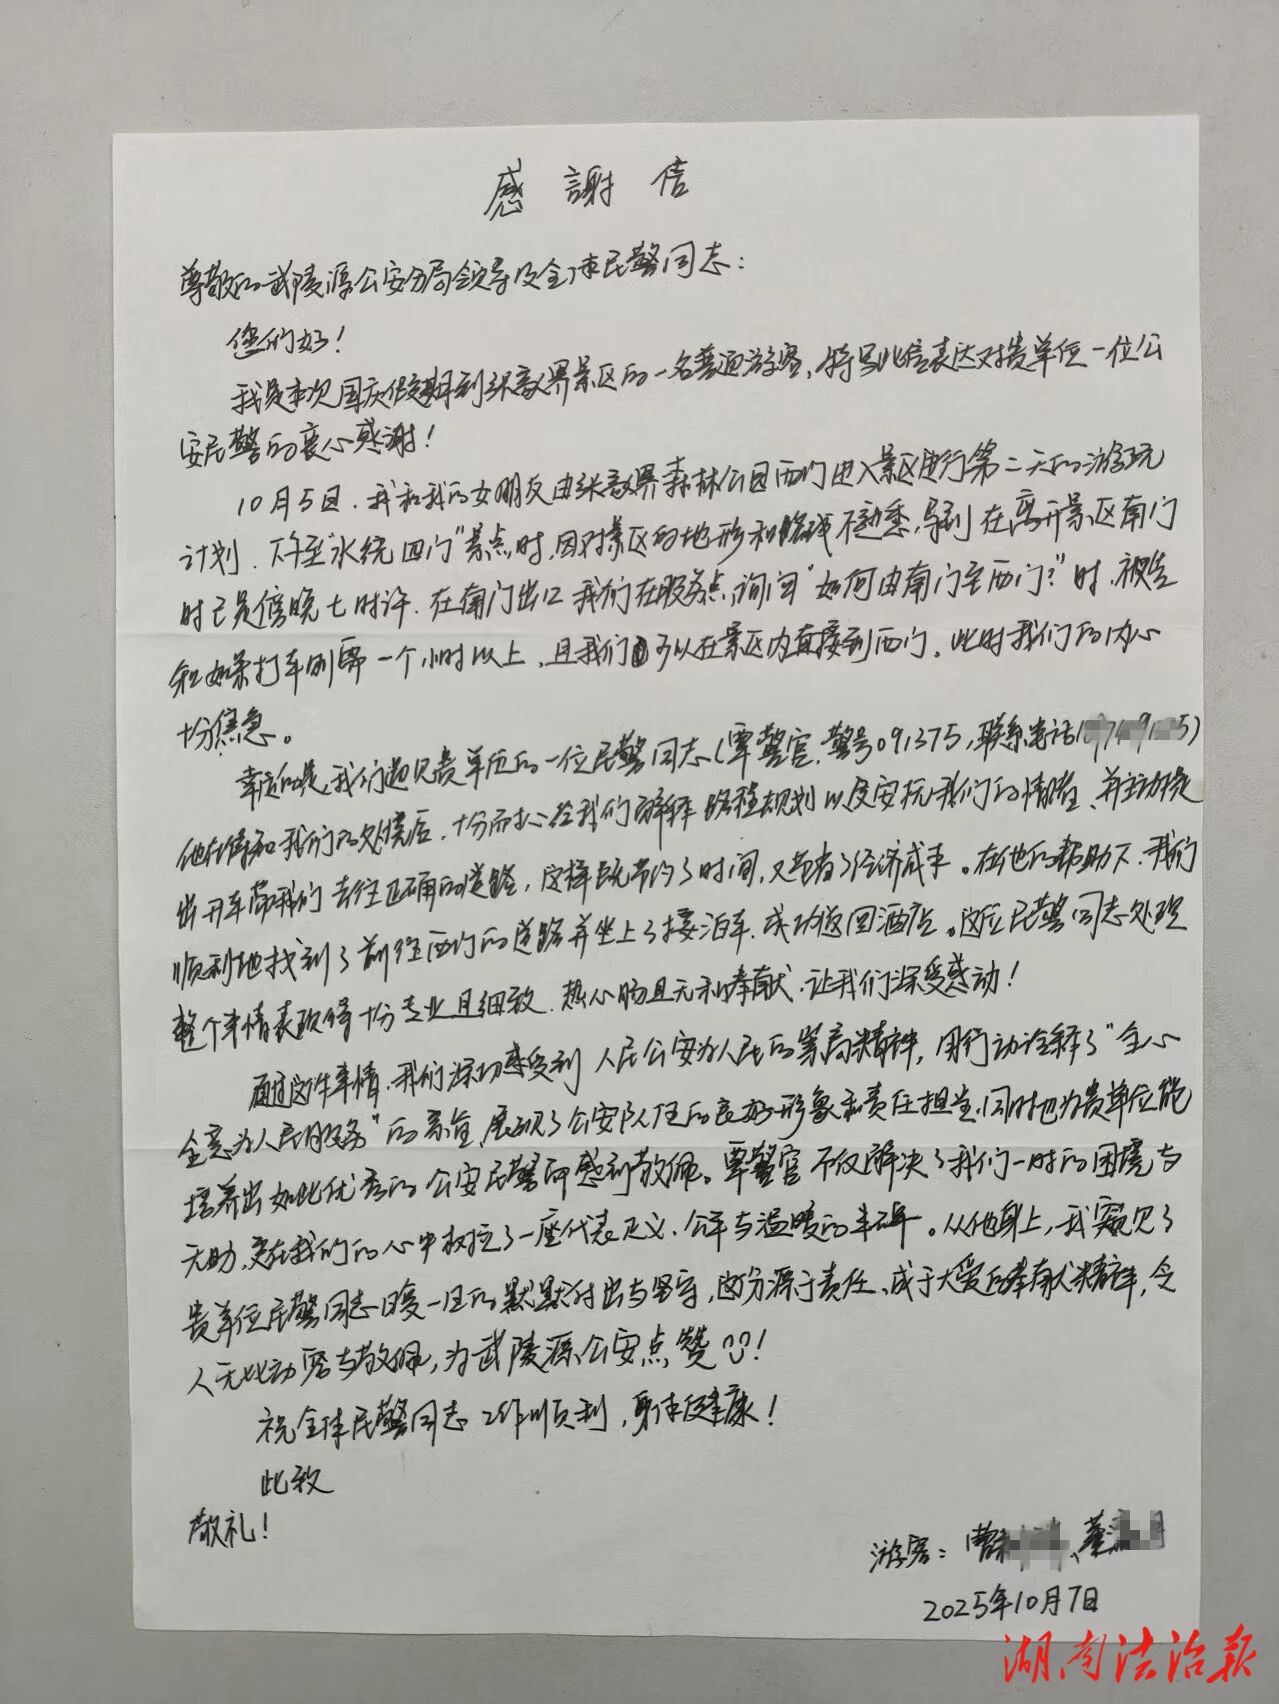 感謝信
尊敬的武陵源公安分局领导及全体民警同志：
您们好！
我是本次国庆假期到张家界景区的一名普通游客，特写此信表达对贵单位一位公
安民警的衷心感谢！
10月5日，我和我的女朋友由张家界森林公园西门进入景区进行第二天的游玩
计划。下午至“水绕四门”景点时，因对景区的地形和路线不熟悉，导到在离开景区南门
时已是傍晚七时许。在南门出口我们在服务点询问“如何由南门至西门？”时，被告
知如果打车则需一个小时以上，且我们可以在景区内直接到西门。此时我们的内心
十分焦急。
幸运的是，我们遇见贵单位的一位民警同志（覃警官，警号091375，联系电话
他在得知我们的处境后，十分耐心给我们解释路程规划以及安抚我们的情绪，并主动提
出开车带我们去往正确的道路，这样既节约了时间，又节省了经济成本。在他的帮助下，我们
顺利地找到了前往西门的道路并坐上了接泊车，成功返回酒店。这位民警同志处理
整个事情表现得十分专业且细致，热心肠且无私奉献，让我们深受感动！
通过这件事情，我们深切感受到人民公安为人民的崇高精神，用行动诠释了“全心
全意为人民服务”的宗旨，展现了公安队伍的良好形象和责任担当，同时也为贵单位能
培养出如此优秀的公安民警而感到敬佩。覃警官不仅解决了我们一时的困境与
无助，更在我们的心中树立了一座代表正义、公平与温暖的丰碑。从他身上，我窥见了
贵单位民警同志日复一日的默默付出与坚守，这份源于责任、成于大爱的奉献精神，令
人无比动容与敬佩，为武陵源公安点赞！
祝全体民警同志工作顺利，身体健康！
此致
敬礼！
游客：曹 、董
2025年10月7日
湖南法治报